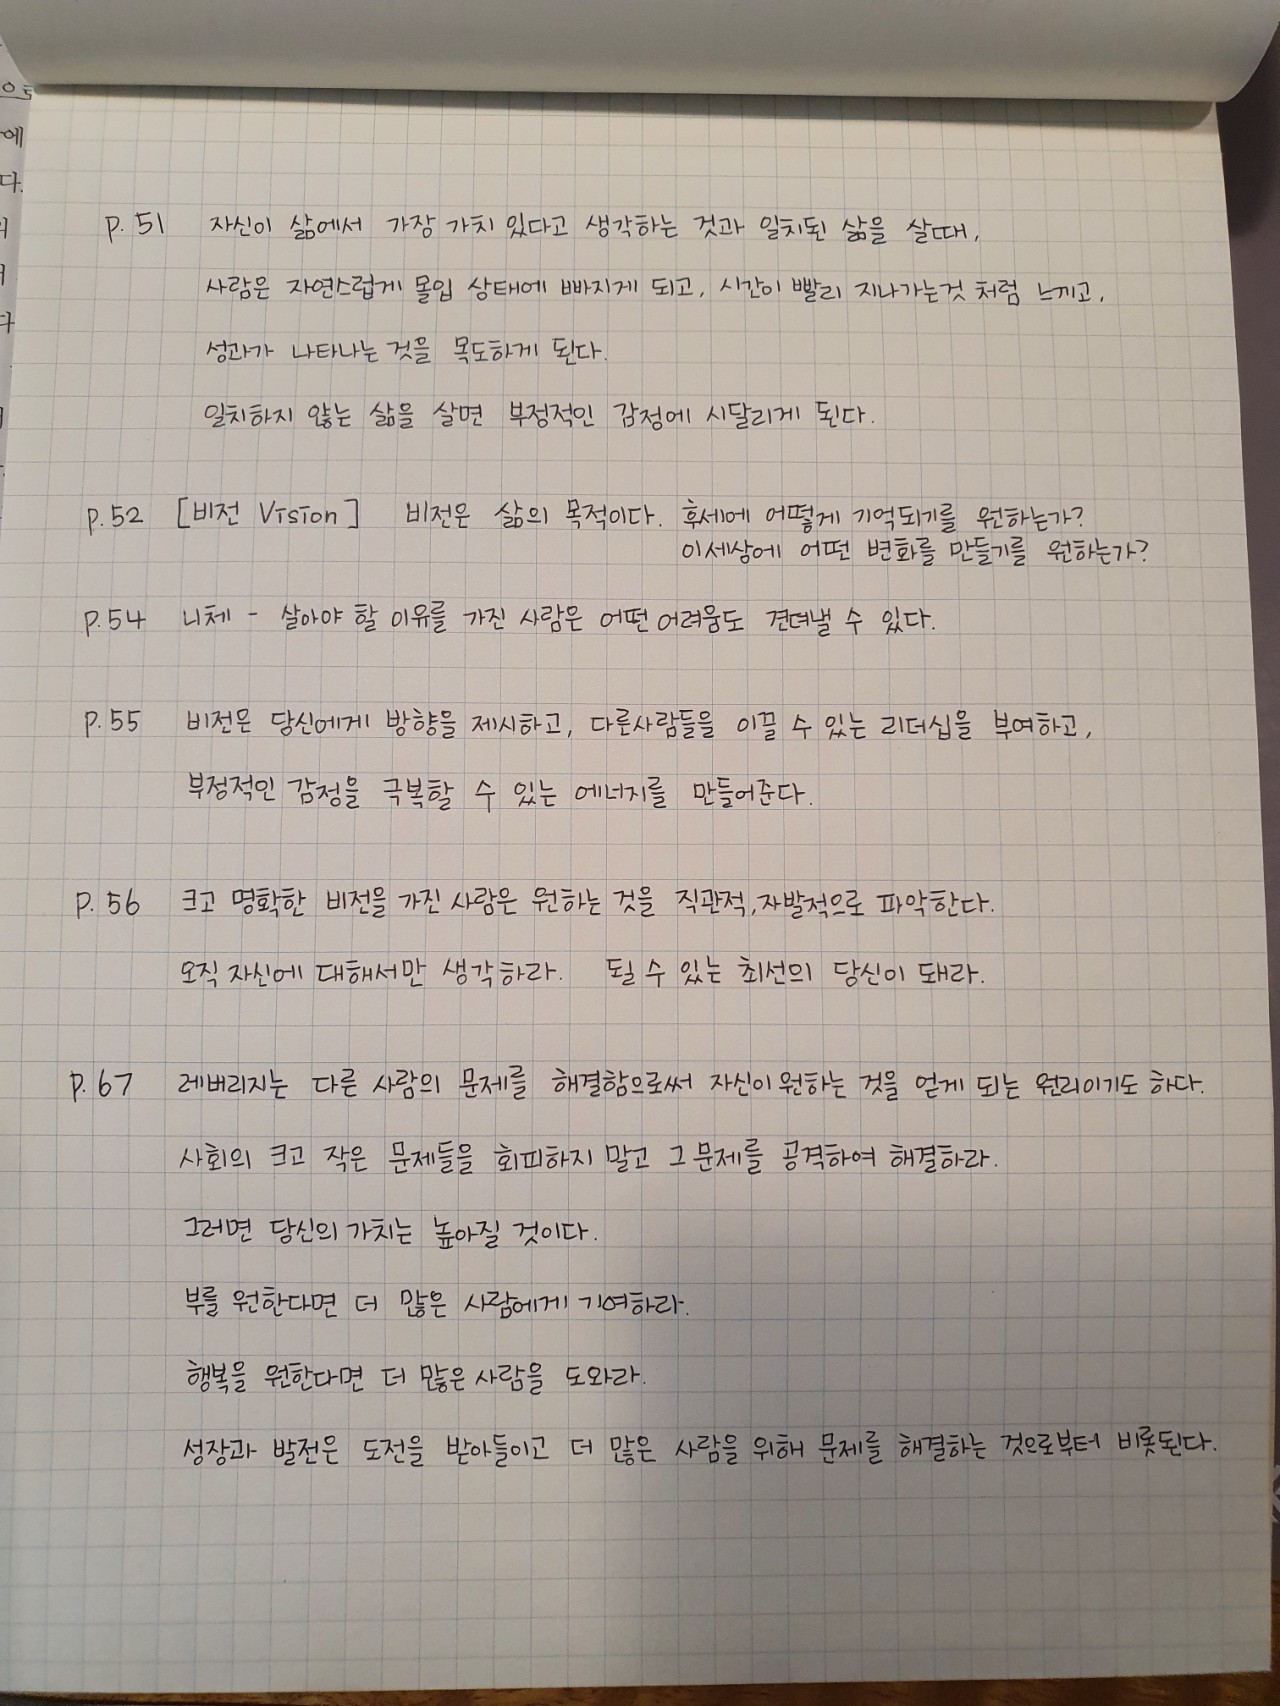 으로
에
다.
다
p. 51 자신이 삶에서 가장 가치 있다고 생각하는 것과 일치된 삶을 살때,
사람은 자연스럽게 몰입 상태에 빠지게 되고, 시간이 빨리 지나가는것 처럼 느끼고,
성과가 나타나는 것을 목도하게 된다.
일치하지 않는 삶을 살면 부정적인 감정에 시달리게 된다.
p. 52 [비전 Vision] 비전은 삶의 목적이다. 후세에 어떻게 기억되기를 원하는가?
이세상에 어떤 변화를 만들기를 원하는가?
p. 54 니체 - 살아야 할 이유를 가진 사람은 어떤 어려움도 견뎌낼 수 있다.
p. 55 비전은 당신에게 방향을 제시하고, 다른사람들을 이끌 수 있는 리더십을 부여하고,
부정적인 감정을 극복할 수 있는 에너지를 만들어준다.
p. 56 크고 명확한 비전을 가진 사람은 원하는 것을 직관적, 자발적으로 파악한다.
오직 자신에 대해서만 생각하라. 될 수 있는 최선의 당신이 돼라.
p. 67 레버리지는 다른 사람의 문제를 해결함으로써 자신이 원하는 것을 얻게 되는 원리이기도 하다.
사회의 크고 작은 문제들을 회피하지 말고 그 문제를 공격하여 해결하라.
그러면 당신의 가치는 높아질 것이다.
부를 원한다면 더 많은 사람에게 기여하라.
행복을 원한다면 더 많은 사람을 도와라.
성장과 발전은 도전을 받아들이고 더 많은 사람을 위해 문제를 해결하는 것으로부터 비롯된다.